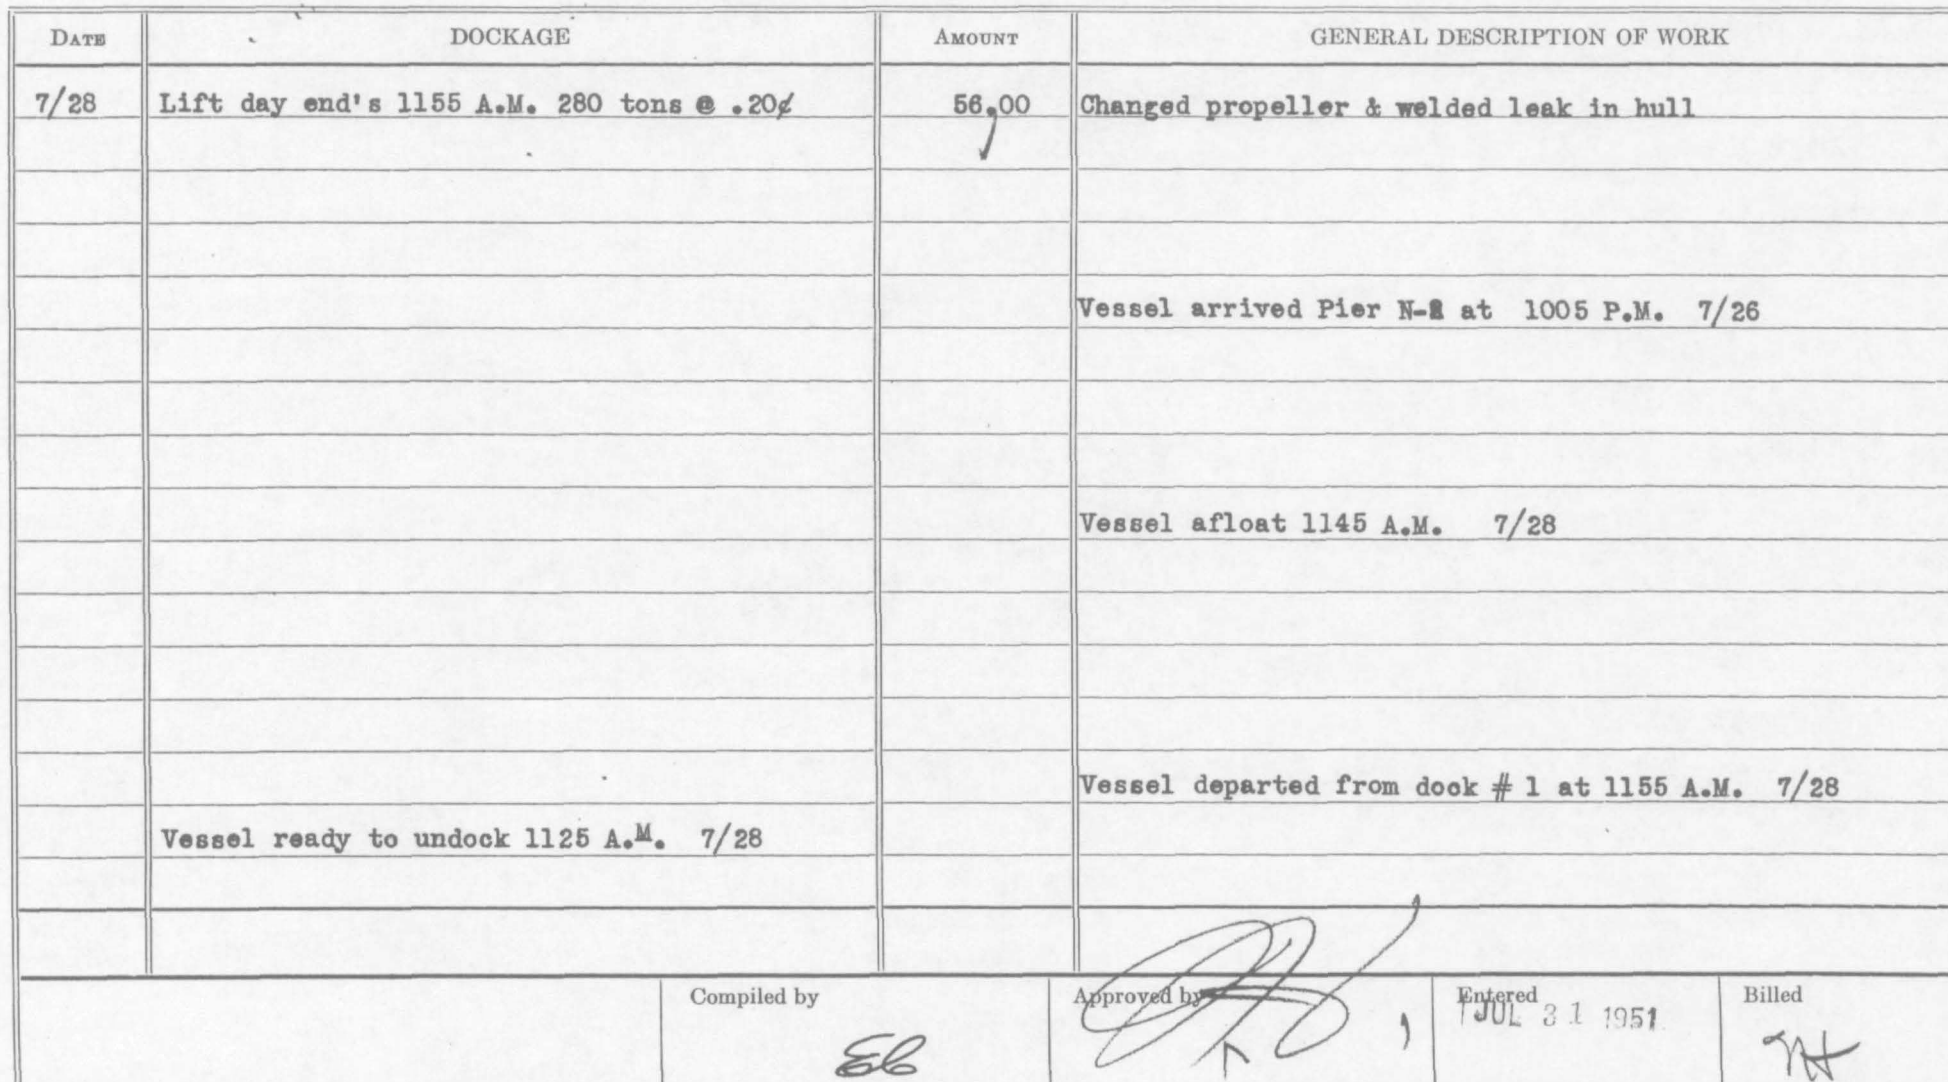 DATE DOCKAGE AMOUNT GENERAL DESCRIPTION OF WORK
7/28 Lift day end's 1155 A.M. 280 tons @ .20¢ 56.00 Changed propeller & welded leak in hull
Vessel arrived Pier N- at 1005 P.M. 7/26
Vessel afloat 1145 A.M. 7/28
Vessel departed from dock # 1 at 1155 A.M. 7/28
Vessel ready to undock 1125 A.M. 7/28
Compiled by Approved by Entered Billed
JUL 31 1951